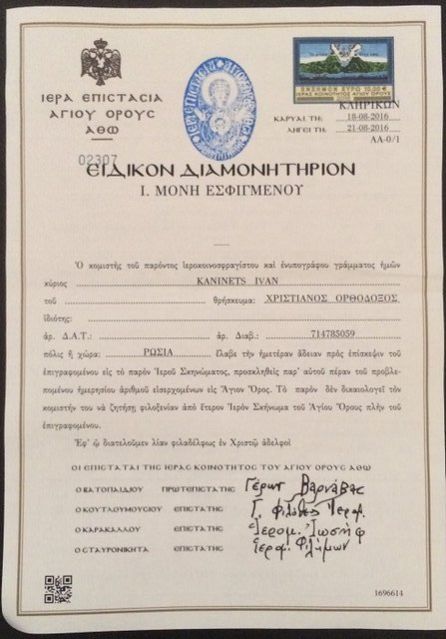 ΙΕΡΑ ΕΠΙΣΤΑΣΙΑ
ΑΓΙΟΥ ΟΡΟΥΣ
ΑΘΩ
ΕΝΣΗΜΟΝ ΕΥΡΩ 10,00 €
ΙΕΡΑΣ ΚΟΙΝΟΤΗΤΟΣ ΑΓΙΟΥ ΟΡΟΥΣ
ΚΛΗΡΙΚΩΝ
ΚΑΡΥΑΙ ΤΗ: 18-08-2016
ΛΗΓΕΙ ΤΗ: 21-08-2016
ΑΑ-0/1
02307
ΕΙΔΙΚΟΝ ΔΙΑΜΟΝΗΤΗΡΙΟΝ
Ι. ΜΟΝΗ ΕΣΦΙΓΜΕΝΟΥ
Ὁ κομιστής τοῦ παρόντος ἱεροκοινοσφραγίστου καί ἐνυπογράφου γράμματος ἡμῶν
κύριος KANINETS IVAN
τοῦ θρήσκευμα: ΧΡΙΣΤΙΑΝΟΣ ΟΡΘΟΔΟΞΟΣ
ἰδιότης:
ἀρ. Δ.Α.Τ.: ἀρ. Διαβ.: 714785059
πόλις ἤ χώρα: ΡΩΣΙΑ ἔλαβε τήν ἡμετέραν ἄδειαν πρός ἐπίσκεψιν τοῦ
ἐπιγραφομένου εἰς τό παρόν Ἱεροῦ Σκηνώματος, προσκληθείς παρ' αὐτοῦ πέραν τοῦ προβλε-
πομένου ἡμερησίου ἀριθμοῦ εἰσερχομένων εἰς Ἅγιον Ὄρος. Τό παρόν δέν δικαιολογεῖ τόν
κομιστήν του νά ζητήσῃ φιλοξενίαν ἀπό ἕτερον Ἱερόν Σκήνωμα τοῦ Ἁγίου Ὄρους πλήν τοῦ
ἐπιγραφομένου.
Ἐφ' ᾧ διατελοῦμεν λίαν φιλαδέλφως ἐν Χριστῷ ἀδελφοί
ΟΙ ΕΠΙΣΤΑΤΑΙ ΤΗΣ ΙΕΡΑΣ ΚΟΙΝΟΤΗΤΟΣ ΤΟΥ ΑΓΙΟΥ ΟΡΟΥΣ ΑΘΩ
Ο ΒΑΤΟΠΑΙΔΙΟΥ ΠΡΩΤΕΠΙΣΤΑΤΗΣ Γέρων Βαρνάβας
Ο ΚΟΥΤΛΟΥΜΟΥΣΙΟΥ ΕΠΙΣΤΑΤΗΣ Γ. Φιλόθεος Ἱερομ.
Ο ΚΑΡΑΚΑΛΛΟΥ ΕΠΙΣΤΑΤΗΣ Ἱερομ. Ἰωσήφ
Ο ΣΤΑΥΡΟΝΙΚΗΤΑ ΕΠΙΣΤΑΤΗΣ Ἱερομ. Φιλήμων
1696614